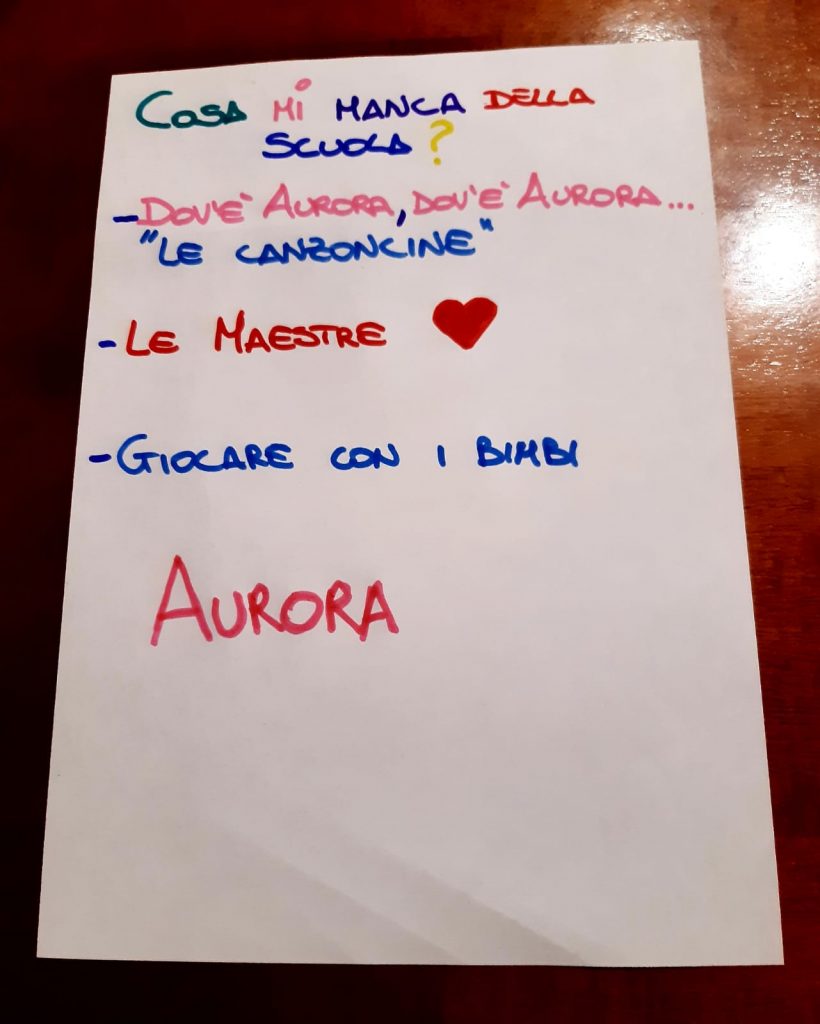 COSA MI MANCA DELLA
SCUOLA?
- DOV'È AURORA, DOV'È AURORA...
"LE CANZONCINE"
- LE MAESTRE
- GIOCARE CON I BIMBI
AURORA